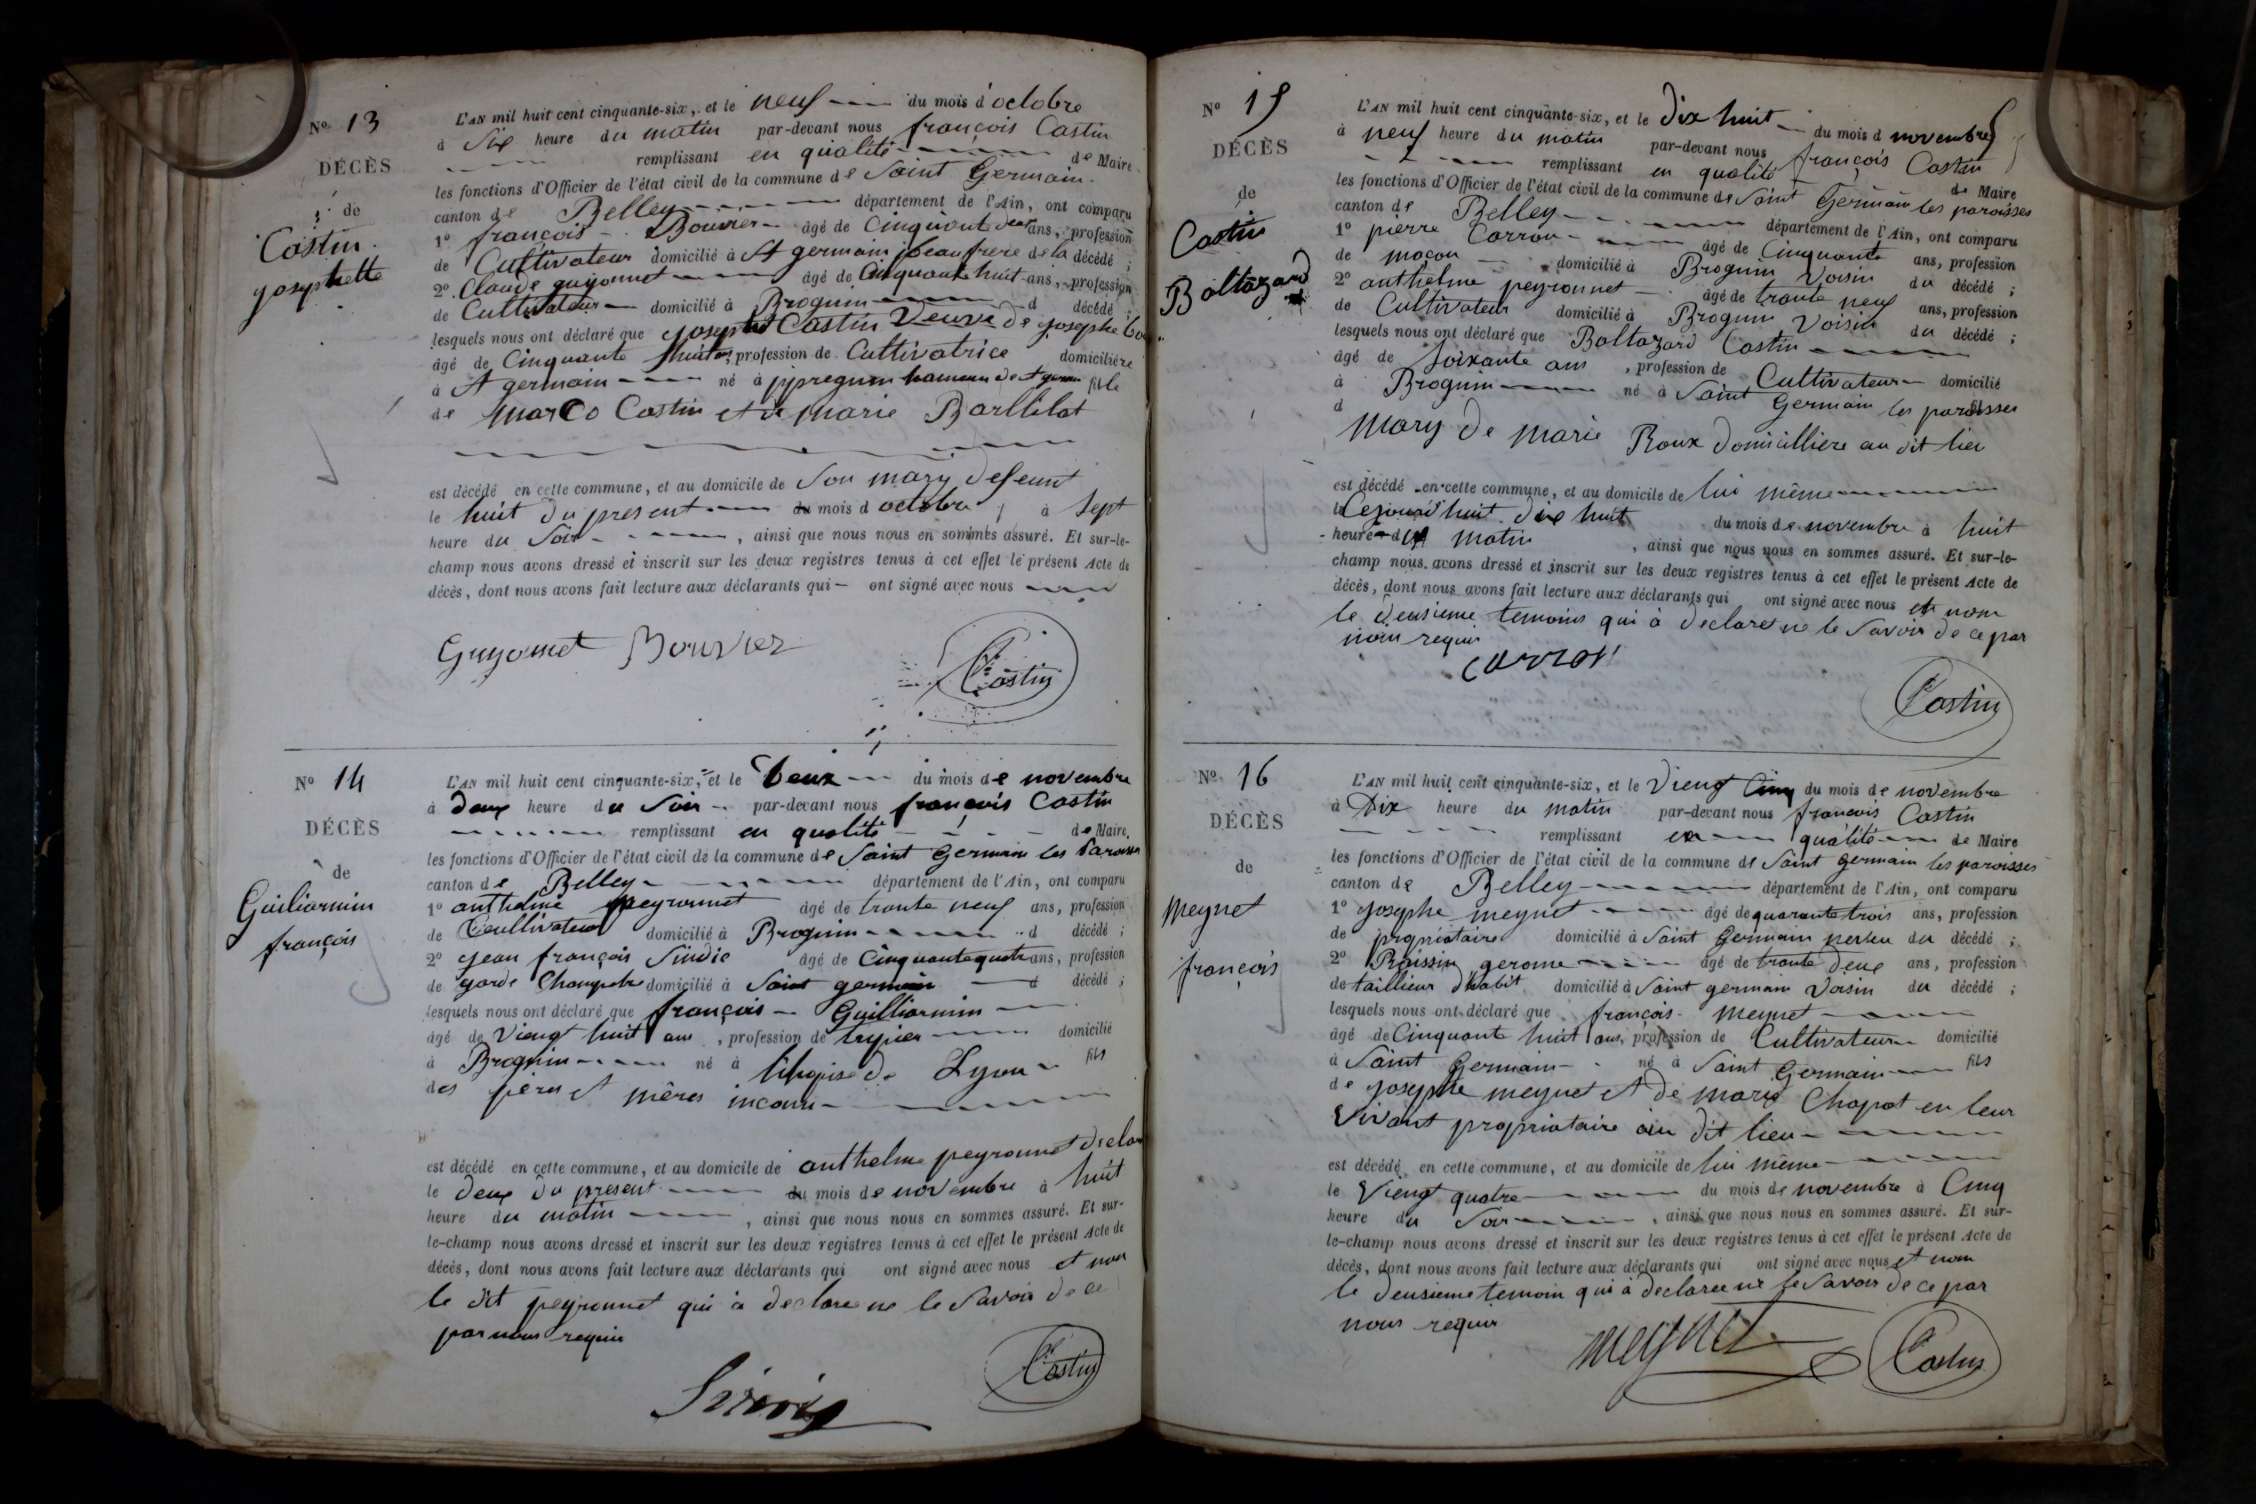 N° 13
DÉCÈS
de
Castin
Josephette
L'AN mil huit cent cinquante-six, et le neuf du mois d'octobre
à Six heure du matin par-devant nous françois Castin
remplissant en qualité de Maire
les fonctions d'Officier de l'état civil de la commune de Saint Germain
canton de Belley département de l'Ain, ont comparu
1° françois Bouvier âgé de Cinquante deux ans, profession
de Cultivateur domicilié à St germain beaufrere de la décédé ;
2° Claude guyonnet âgé de Cinquante huit ans, profession
de Cultivateur domicilié à Brognin d décédé ;
lesquels nous ont déclaré que Josephte Castin Veuve de Josephe
âgé de Cinquante huit ans, profession de Cultivatrice domicilière
à St germain né à hameau de St germain fille
de Marco Castin et de marie Barllilot
est décédé en cette commune, et au domicile de Son mary defeunt
le huit du present du mois d octobre à Sept
heure du Soir, ainsi que nous nous en sommes assuré. Et sur-le-
champ nous avons dressé et inscrit sur les deux registres tenus à cet effet le présent Acte de
décès, dont nous avons fait lecture aux déclarants qui ont signé avec nous
Guyonnet Bouvier
Castin
N° 14
DÉCÈS
de
Guilliarmin
françois
L'AN mil huit cent cinquante-six, et le Deux du mois de novembre
à deux heure du Soir par-devant nous françois Castin
remplissant en qualité de Maire
les fonctions d'Officier de l'état civil de la commune de Saint Germain les Paroisses
canton de Belley département de l'Ain, ont comparu
1° anthelme peyronnet âgé de trante neuf ans, profession
de Cultivateur domicilié à Brognin d décédé ;
2° Jean françois Sindic âgé de Cinquante quatre ans, profession
de garde Champetre domicilié à Saint germain d décédé ;
lesquels nous ont déclaré que françois Guilliarmin
âgé de Viengt huit ans, profession de domicilié
à Brognin né à de Lyon fils
des peres et mères inconnu
est décédé en cette commune, et au domicile de anthelme peyronnet
le deux du present du mois de novembre à huit
heure du matin, ainsi que nous nous en sommes assuré. Et sur-
le-champ nous avons dressé et inscrit sur les deux registres tenus à cet effet le présent Acte de
décès, dont nous avons fait lecture aux déclarants qui ont signé avec nous et non
le dit peyronnet qui à declare ne le Savoir de ce
par nous requis
Castin
N° 15
DÉCÈS
de
Castin
Baltazard
L'AN mil huit cent cinquante-six, et le Dix huit du mois d novembre
à neuf heure du matin par-devant nous françois Castin
remplissant en qualité de Maire
les fonctions d'Officier de l'état civil de la commune de Saint Germain les paroisses
canton de Belley département de l'Ain, ont comparu
1° pierre Carron âgé de Cinquante ans, profession
de maçon domicilié à Brognin Voisin du décédé ;
2° anthelme peyronnet âgé de trante neuf ans, profession
de Cultivateur domicilié à Brognin Voisin du décédé ;
lesquels nous ont déclaré que Baltazard Castin
âgé de Soixante ans, profession de Cultivateur domicilié
à Brognin né à Saint Germain les paroisses fils
d
Mary de marie Roux domicilliere au dit lieu
est décédé en cette commune, et au domicile de lui même
le Cejourd'huit dix huit du mois de novembre à huit
heure du matin, ainsi que nous nous en sommes assuré. Et sur-le-
champ nous avons dressé et inscrit sur les deux registres tenus à cet effet le présent Acte de
décès, dont nous avons fait lecture aux déclarants qui ont signé avec nous et non
le deusieme temoins qui à declare ne le Savoir de ce par
nous requis
carron
Castin
N° 16
DÉCÈS
de
Meynet
françois
L'AN mil huit cent cinquante-six, et le Viengt Cinq du mois de novembre
à Dix heure du matin par-devant nous françois Castin
remplissant en qualité de Maire
les fonctions d'Officier de l'état civil de la commune de Saint germain les paroisses
canton de Belley département de l'Ain, ont comparu
1° Josephe meynet âgé de quarante trois ans, profession
de propriataire domicilié à Saint Germain neveu du décédé ;
2° Roissin gerome âgé de trante deux ans, profession
de taillieur d'habit domicilié à Saint germain Voisin du décédé ;
lesquels nous ont déclaré que françois meynet
âgé de Cinquante huit ans, profession de Cultivateur domicilié
à Saint Germain né à Saint Germain fils
de Josephe meynet et de marie Chapot en leur
Vivant propriataire au dit lieu
est décédé en cette commune, et au domicile de lui même
le Viengt quatre du mois de novembre à Cinq
heure du Soir, ainsi que nous nous en sommes assuré. Et sur-
le-champ nous avons dressé et inscrit sur les deux registres tenus à cet effet le présent Acte de
décès, dont nous avons fait lecture aux déclarants qui ont signé avec nous et non
le Deusieme temoin qui à declaree ne le Savoir de ce par
nous requis
meynet
Castin